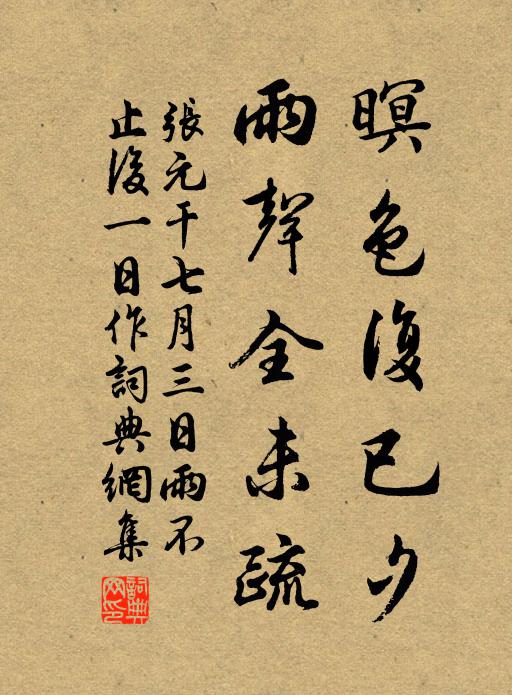 暝色復已夕
雨聲全未疏
張元干七月三日雨不
止後一日作詞典網集
詞典
网印